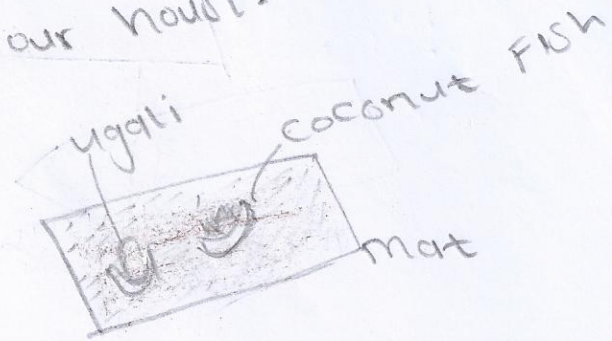 our
ugali
coconut Fish
mat